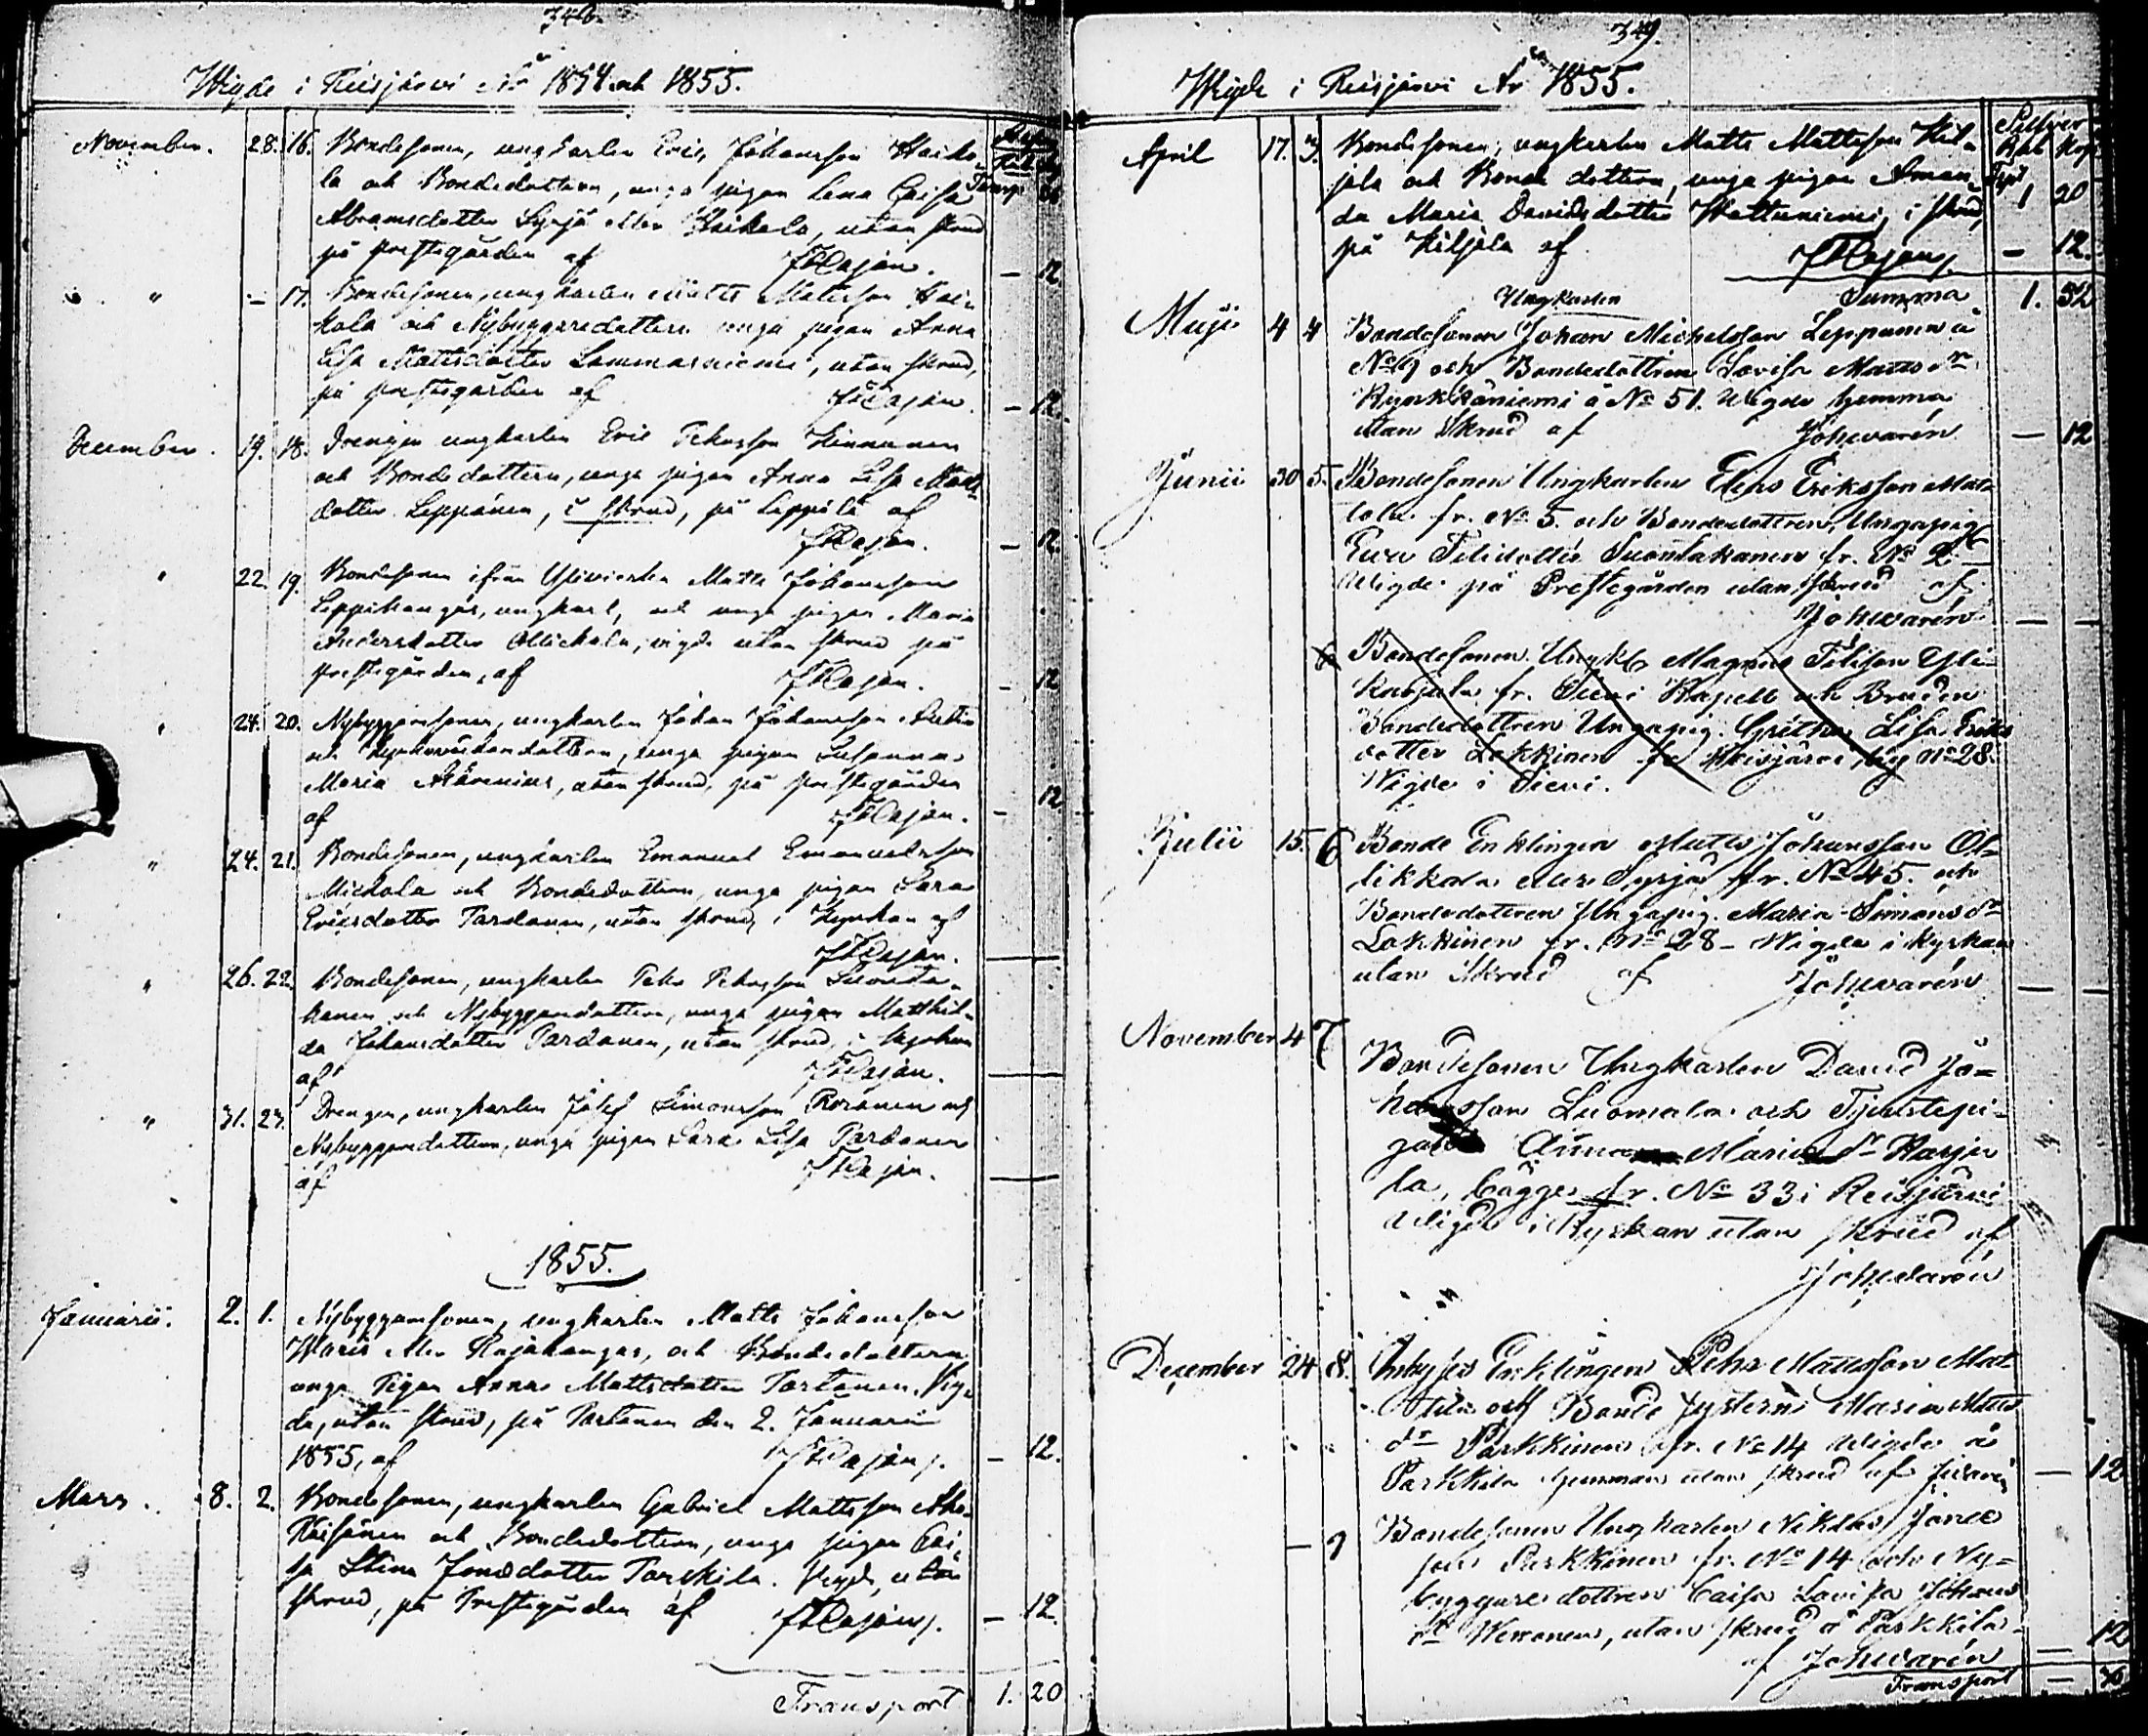 348.
Wigde i Reisjärvi År 1854 och 1855.
November. 28. 16. Bondesonen, ungkarlen Eric Johansson Haiko-
la och Bondedottern, unga pigan Lena Caisa Transp.
Abramsdotter Syrjä eller Haikola, utan skrud
på prestegården af — 12
" — 17. Bondesonen, ungkarlen Matts Mattsson Hai-
kola och Nybyggaredottern unga pigan Anna
Lisa Mattsdotter Lammasniemi, utan skrud,
på prestegården af — 12.
December. 19. 18. Drengen ungkarlen Eric Petersson Kinnunen
och Bondedottern, unga pigan Anna Lisa Matts
dotter Leppänen, i skrud, på Leppälä af
— 12.
" 22. 19. Bondesonen ifrån Ylivieska Matts Johansson
Leppikangas, ungkarl, och unga pigan Maria
Andersdotter Ollikkala, vigde utan skrud på
prestegården, af — 12
" 24. 20. Nybyggaresonen, ungkarlen Johan Johansson
och dottern, unga pigan Susanna
Maria utan skrud, på prestegården
af — 12
" 24. 21. Bondesonen, ungkarlen Emanuel Emanuelsson
Mickola och Bondedottern, unga pigan Sara
Ericsdotter Pardanen, utan skrud, i Kyrkan af
" 26. 22. Bondesonen, ungkarlen Pehr Pehrsson Suonta-
kanen och Nybyggaredottern, unga pigan Matthil-
da Johansdotter Pardanen, utan skrud, i kyrkan
af
" 31. 23. Drengen, ungkarlen Josef Simonsson Roranen och
Nybyggaredottern, unga pigan Sara Lisa Pardanen
af
1855.
Januarii. 2. 1. Nybyggaresonen, ungkarlen Matts Johansson
Waris eller Rajakangas, och Bondedottern
unga Pigan Anna Mattsdotter Partanen. Vig-
da, utan skrud, på Partanen den 2. Januarii
1855, af — 12.
Mars. 8. 2. Bondesonen, ungkarlen Gabriel Mattsson Aho-
och Bondedottern, unga pigan Cai-
sa Stina Jonsdotter Parkkila. Vigde, utan
skrud, på Prestegården af — 12.
Transport 1. 20
349.
Wigde i Reisjärvi År 1855.
Silfver
Rub Kop
April 17. 3. Bondesonen, ungkarlen Matts Mattsson Kil-
jala och Bonde dottern, unga pigan Aman- 1 20
da Maria Davidsdotter Hattuniemi, i skrud,
på Kiljala af — 12.
Summa 1. 32
Ungkarlen
Maji 4 4 Bondesonen Johan Michelsson Leppänen å
No 9 och Bondedottren Lovisa Matts dr
å No 51. Wigde hemma
utan Skrud af Joh. Warén — 12
Junii 30 5. Bondesonen Ungkarlen Elias Eriksson Mat-
tola fr. No 5. och Bondedottren, Ungapig.
Ewa Suontakanen fr. No 2
Wigde på Prestegården utan skrud af
Joh. Warén —
6 Bondesonen Ungk. Magnus Yli-
fr. Sievi Kapell och Bruden
Bondedottren Ungapig. Gretha Lisa Eriks
dotter Lokkinen fr Reisjärvi by No 28.
Wigde i Sievi.
Julii 15. 6 Bonde Enklingen Matts Johansson Ol-
likkala eller Syrjä fr. No 45. och
Bondedottren Ungapig. Maria Simons dr
Lokkinen fr. No 28 – Wigde i kyrkan
utan Skrud af Joh. Warén —
November 4 7 Bondesonen Ungkarlen David Jo-
hansson Luomala och Tjenstepi-
gan Anna Maria dr Karja
la, bägge fr. No 33 i Reisjärvi
Wigde i Kyrkan utan skrud af
Joh. Warén
December 24 8. Inhyses Enklingen Pehr Mattsson Mat
tila och Bonde systern Maria Matts
dr Parkkinen fr. No 14 Wigde å
Parkkila hemman utan skrud af — 12
— 9 Bondesonen Ungkarlen Niklas Jonas
son Parkkinen fr. No 14 och Ny-
byggare dottren Caisa Lovisa Johans
dr utan skrud å Parkkila — 12
af Joh. Warén
Transport — 36